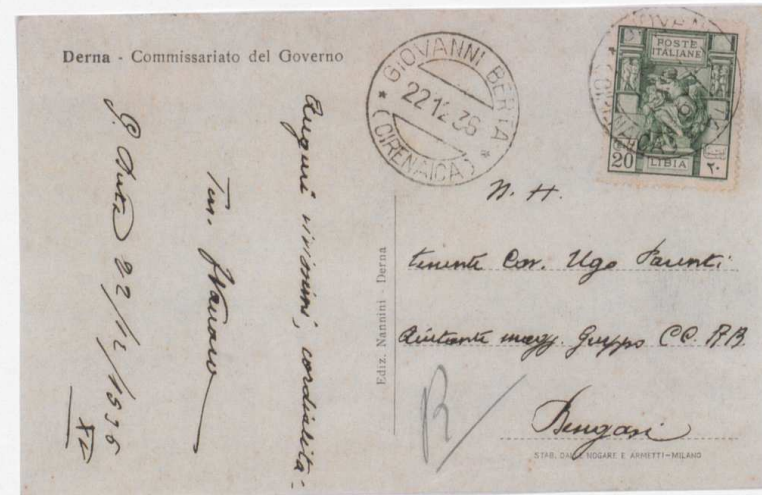 Derna - Commissariato del Governo
GIOVANNI BERTA
22.12.36
(CIRENAICA)
POSTE
ITALIANE
20 LIBIA ٢٠
Auguri vivissimi, cordialità.
Ten.
G. Berta 22/12/1936
XV
Ediz. Nannini - Derna
N. H.
tenente Cav. Ugo Parenti
Aiutante magg. Gruppo CC. RR.
Bengasi
R
STAB. DALLE NOGARE E ARMETTI-MILANO